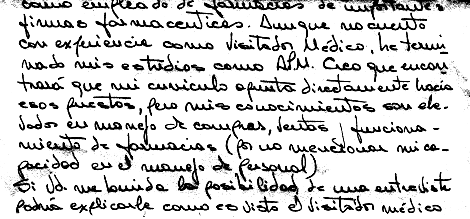 como empleado de farmacias de importantes
firmas farmaceuticas. Aunque no cuento
con experiencia como Visitador Médico, he termi-
nado mis estudios como APM. Creo que encon-
trará que mi curriculo apunta directamente hacia
esos puestos, pero mis conocimientos son ele-
vados en manejo de compras, ventas y funciona-
miento de farmacias (por no mencionar mi ca-
pacidad en el manejo de Personal)
Si Vd. me brinda la posibilidad de una entrevista
podrá explicarle como es visto el visitador médico